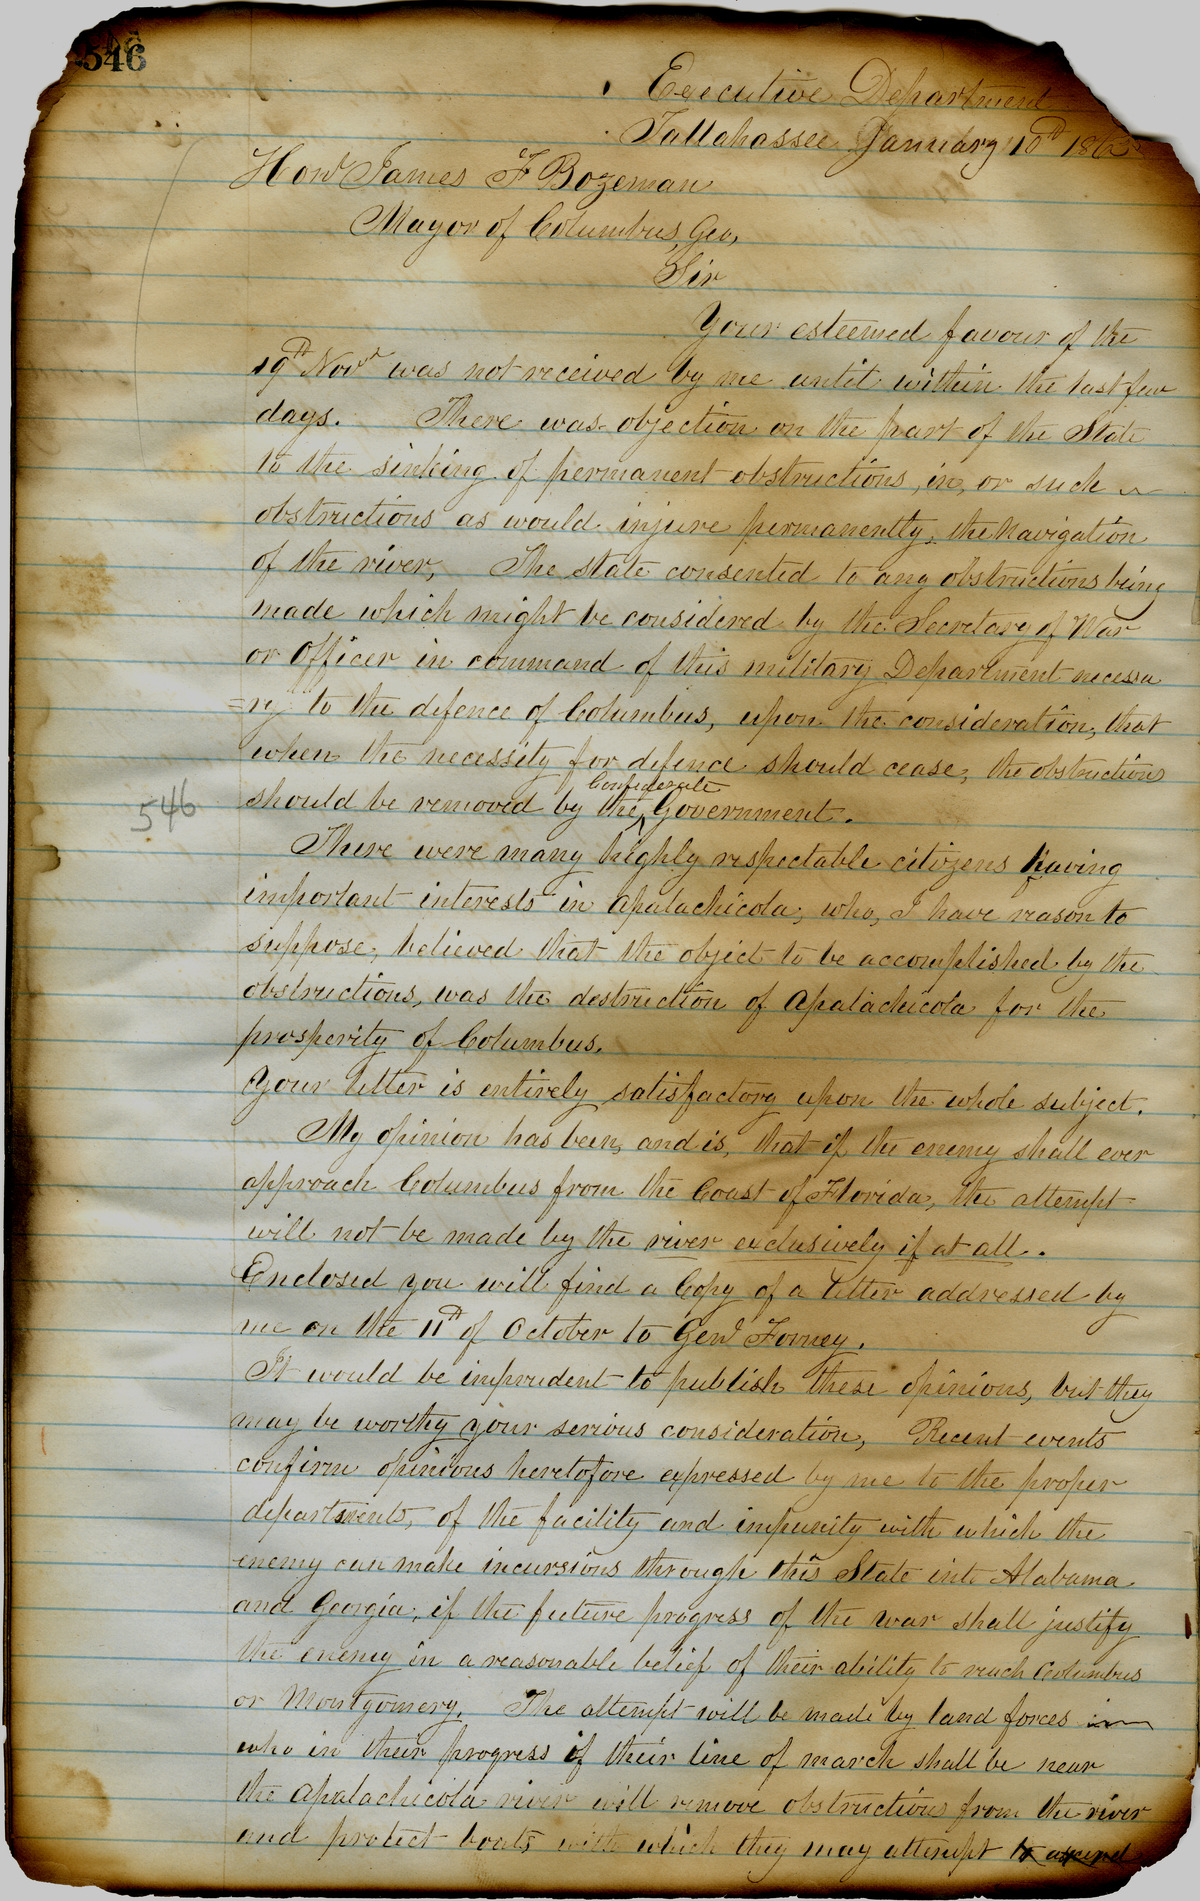 546
Executive Department
Tallahassee January 10th 1863
Hon James F Bozeman
Mayor of Columbus, Geo,
Sir
Your esteemed favour of the
19th Novr was not received by me until within the last few
days. There was objection on the part of the State
to the sinking of permanent obstructions, in, or such
obstructions as would injure permanently, the Navigation
of the river, The state consented to any obstructions being
made which might be considered by the Secretary of War
or Officer in command of this military Department necessa
=ry to the defence of Columbus, upon the consideration, that
when the necessity for defence should cease, the obstructions
Confederate
should be removed by the Government.
546
There were many highly respectable citizens having
important interests in Apalachicola, who, I have reason to
suppose, believed that the object to be accomplished by the
obstructions, was the destruction of Apalachicola for the
prosperity of Columbus.
Your letter is entirely satisfactory upon the whole subject.
My opinion has been, and is, that if the enemy shall ever
approach Columbus from the Coast of Florida, the attempt
will not be made by the river exclusively if at all.
Enclosed you will find a Copy of a letter addressed by
me on the 11th of October to Genl Forney.
It would be imprudent to publish these opinions, but they
may be worthy your serious consideration, Recent events
confirm opinions heretofore expressed by me to the proper
departments, of the facility and impunity with which the
enemy can make incursions through this State into Alabama
and Georgia, if the future progress of the war shall justify
the enemy in a reasonable belief of their ability to reach Columbus
or Montgomery. The attempt will be made by land forces
who in their progress if their line of march shall be near
the Apalachicola river will remove obstructions from the river
and protect boats with which they may attempt to ascend